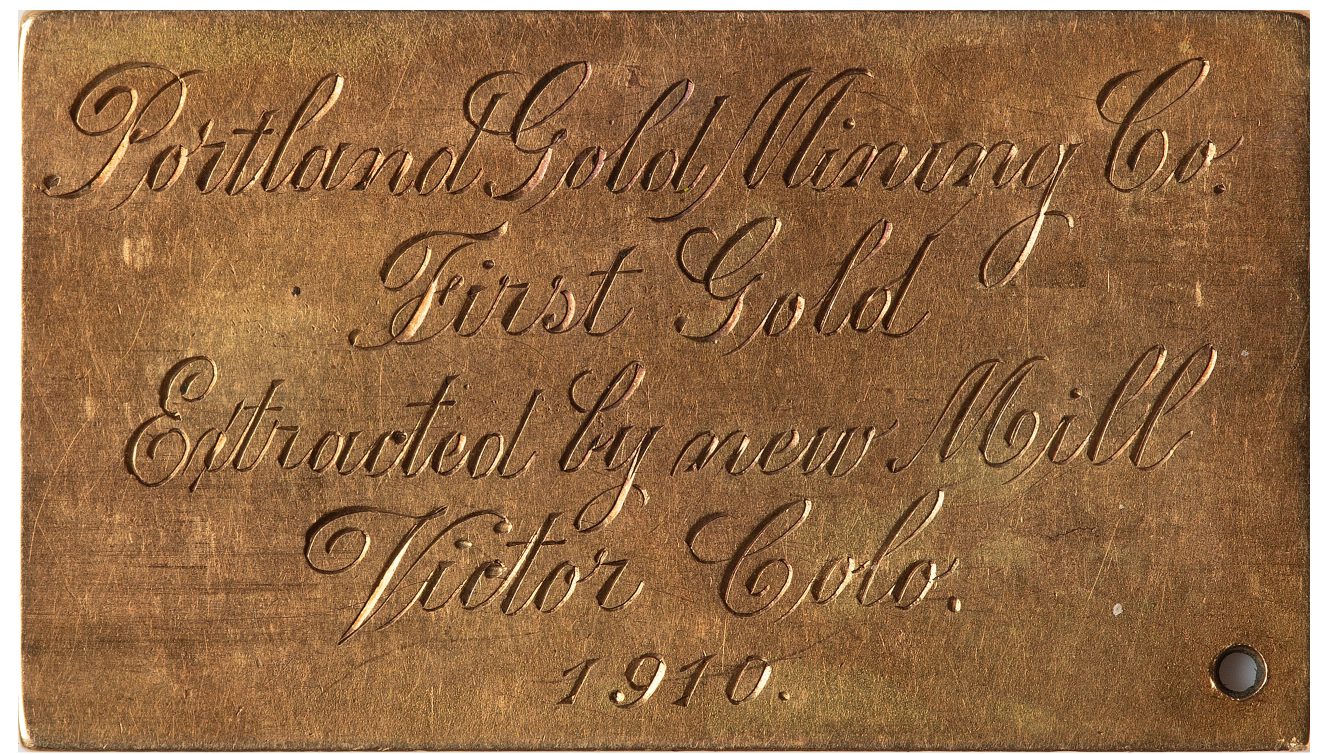 Portland Gold Mining Co.
First Gold
Extracted by new Mill
Victor Colo.
1910.